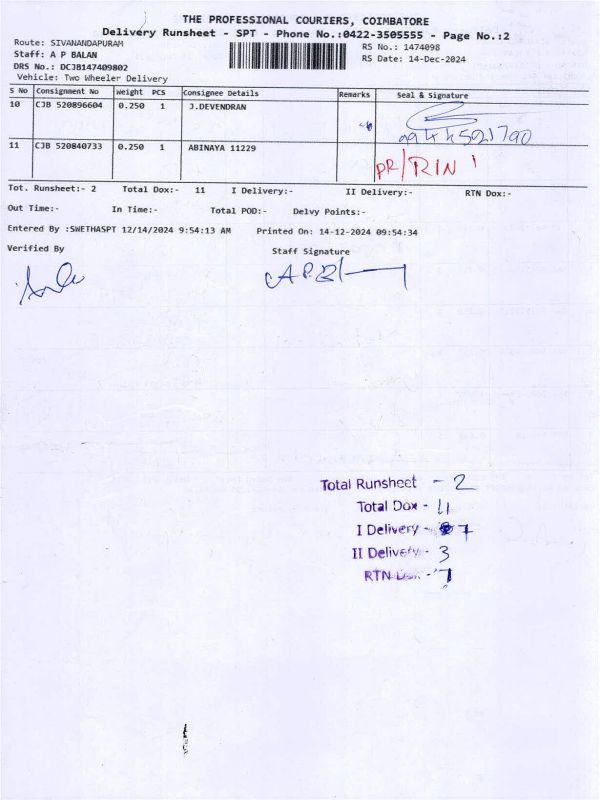 THE PROFESSIONAL COURIERS, COIMBATORE
Delivery Runsheet - SPT - Phone No.:0422-3505555 - Page No.:2
Route: SIVANANDAPURAM
RS No.: 1474098
Staff: A P BALAN
RS Date: 14-Dec-2024
DRS No.: DCJB147409802
Vehicle: Two Wheeler Delivery
S No Consignment No Weight PCS Consignee Details Remarks Seal & Signature
10 CJB 520896604 0.250 1 J.DEVENDRAN
11 CJB 520840733 0.250 1 ABINAYA 11229
PR/RTN
Tot. Runsheet:- 2 Total Dox:- 11 I Delivery:- II Delivery:- RTN Dox:-
Out Time:- In Time:- Total POD:- Delvy Points:-
Entered By :SWETHASPT 12/14/2024 9:54:13 AM Printed On: 14-12-2024 09:54:34
Verified By Staff Signature
Total Runsheet - 2
Total Dox - 11
I Delivery - 7
II Delivery - 3
RTN Dox - 1